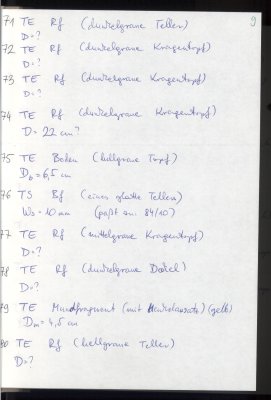 9
71 TE Rf (dunkelgraue Teller)
D=?
72 TE Rf (dunkelgraue Kragentopf)
D=?
73 TE Rf (dunkelgraue Kragentopf)
D=?
74 TE Rf (dunkelgraue Kragentopf)
D=22 cm?
75 TE Boden (hellgraue Topf)
Db=6,5 cm
76 TS Bf (eines glatte Tellers)
Ws=10 mm (paßt an 84/10)
77 TE Rf (mittelgraue Kragentopf)
D=?
78 TE Rf (dunkelgraue Deckel)
D=?
79 TE Mundfragment (mit Henkelansatz) (gelb)
Dm=4,5 cm
80 TE Rf (hellgraue Teller)
D=?